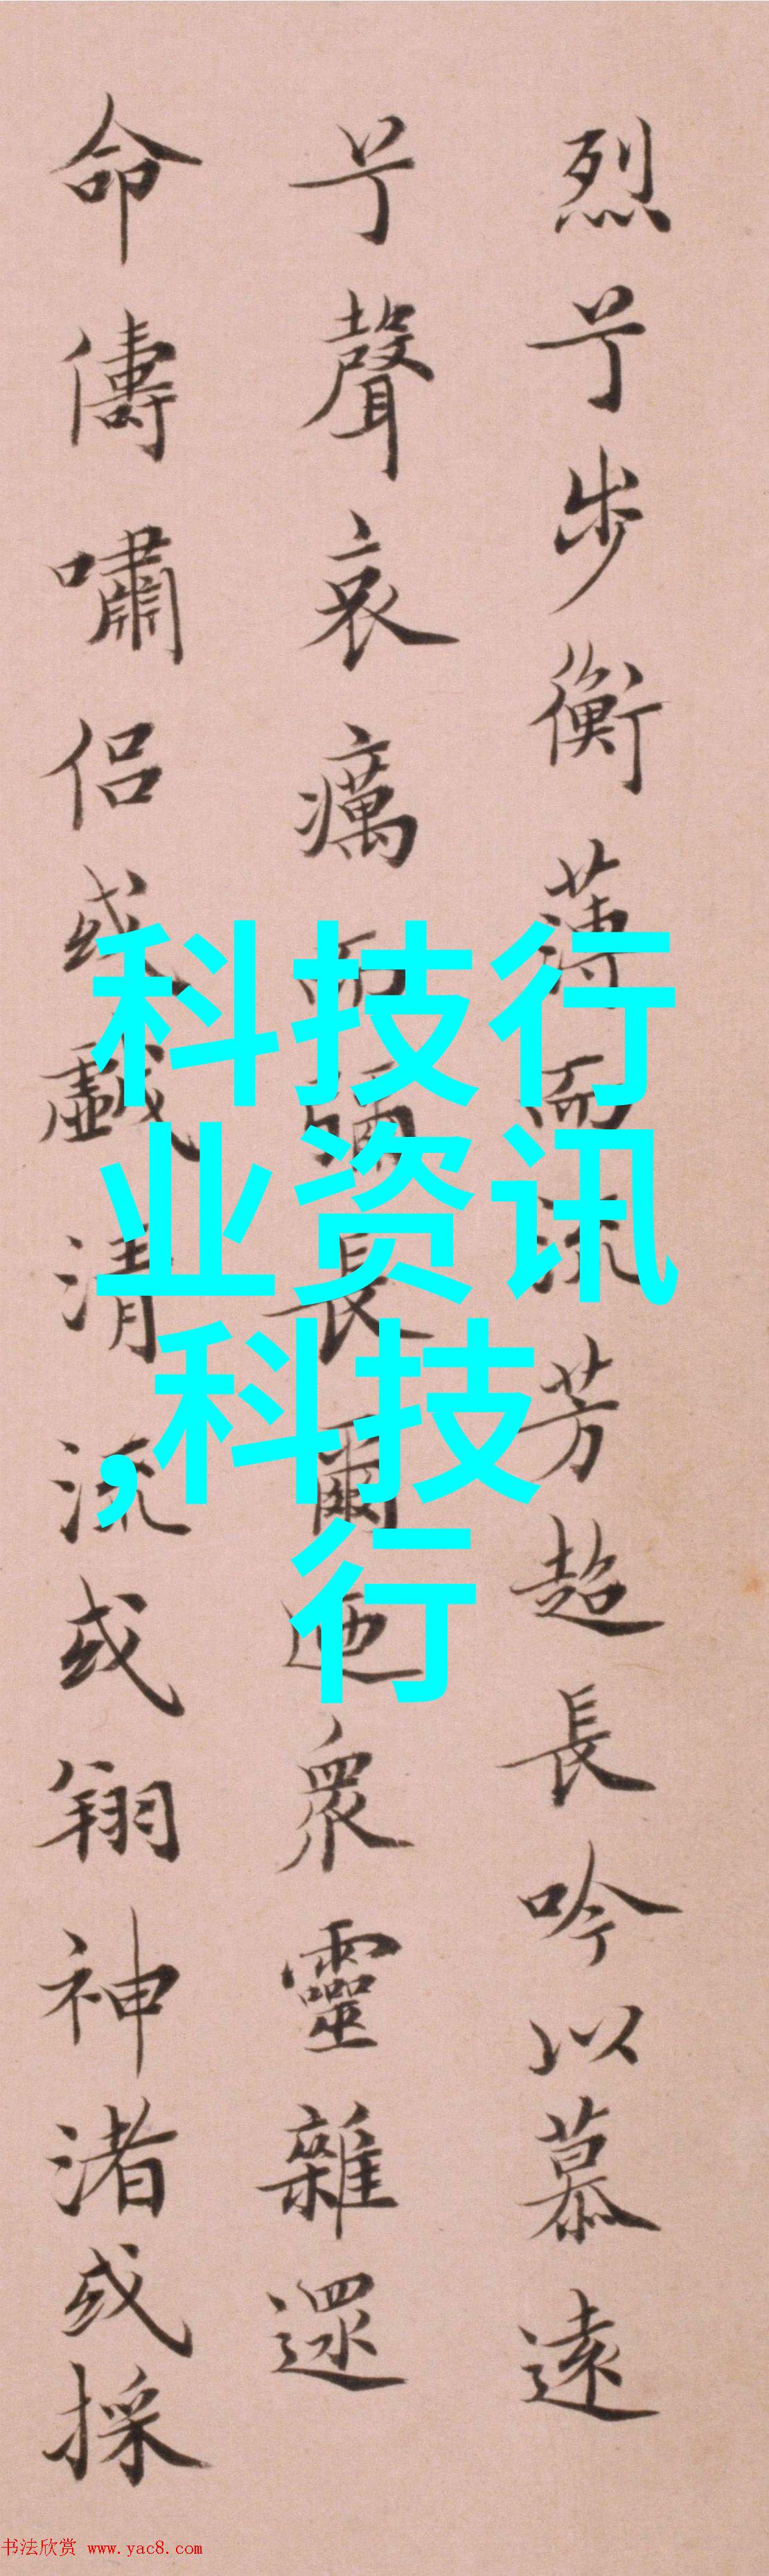 烈兮步衡薄而流芳超長吟以慕遠
兮聲哀癘而彌長爾迺衆靈雜遝
命儔嘯侶或戲清流或翔神渚或採
科技行
业资讯
,科技
行
书法欣赏 www.yac8.com